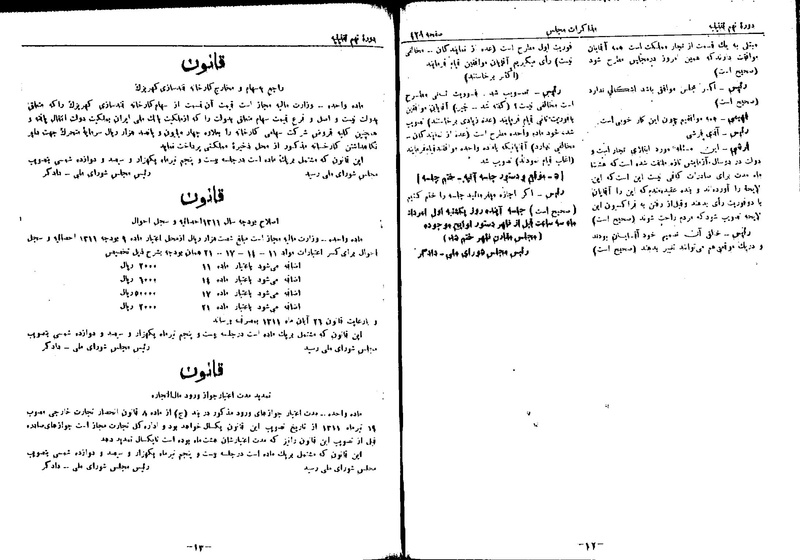 دورهٔ نهم تقنینیه
مذاکرات مجلس
صفحه ۴۲۹
مبتنی به یک قسمت از تجار مملکت است همه آقایان
موافقت دارند که همین امروز در مجلس مطرح شود
(صحیح است)
رئیس - اگر مجلس موافق باشد اشکالی ندارد
(صحیح است)
فهیمی - همه موافقیم چون این کار خوبی است.
رئیس - آقای ارشی
دولت در دو سال آزمایش تازه ملتفت شده است که هشت
ماه مدت برای صادرات کافی نیست این است که این
لایحه را آورده‌اند و بنده عقیده‌مندم که این را آقایان
با دو فوریت رأی بدهند و قبل از رفتن به فراکسیون این
لایحه تصویب شود که مردم راحت شوند (صحیح است)
و در یک موقعی هم می‌توانند تغییر بدهند (صحیح است)
فوریت اول مطرح است (عده از نمایندگان - مخالفی
نیست) رأی میگیریم آقایان موافقین قیام فرمایند
(اکثر برخاستند)
رئیس - تصویب شد. فوریت ثانی مطرح
است مخالفی نیست؟ (گفته شد - خیر) آقایان موافقین
با فوریت ثانی قیام فرمایند (عده زیادی برخاستند) تصویب
شد خود ماده واحده مطرح است (عده از نمایندگان -
مخالفی ندارد) آقایانیکه با ماده واحده موافقند قیام فرمایند
(اغلب قیام نمودند) تصویب شد
[۵ - موقع و دستور جلسه آتیه - ختم جلسه]
رئیس - اگر اجازه میفرمائید جلسه را ختم کنیم
(صحیح است) جلسه آینده روز یکشنبه اول امرداد
ماه سه ساعت قبل از ظهر دستور لوایح موجوده
(مجلس مقارن ظهر ختم شد)
رئیس مجلس شورای ملی - دادگر
-۱۲-
دورهٔ نهم تقنینیه
قانون
راجع بسهام و مخارج کارخانه قندسازی کهریزک
ماده واحده - وزارت مالیه مجاز است قیمت آن قسمت از سهام کارخانه قندسازی کهریزک را که متعلق
بدولت نیست و اصل و فرع قیمت سهام متعلق بدولت را که از طرف بانک ملی ایران بملکیت دولت انتقال یافته و
همچنین کلیه قروض شرکت سهامی کارخانه را بعلاوه چهار ملیون و پانصد هزار ریال سرمایهٔ متحرک جهت دایر
نگاهداشتن کارخانه مذکور از محل ذخیرهٔ مملکتی پرداخت نماید
این قانون که مشتمل بر یک ماده است در جلسه بیست و پنجم تیر ماه یکهزار و سیصد و دوازده شمسی بتصویب
مجلس شورای ملی رسید
رئیس مجلس شورای ملی - دادگر
قانون
اصلاح بودجه سال ۱۳۱۱ احصائیه و سجل احوال
ماده واحده - وزارت مالیه مجاز است مبلغ شصت هزار ریال از محل اعتبار ماده ۹ بودجه ۱۳۱۱ احصائیه و سجل
احوال برای کسر اعتبارات مواد ۱۱ - ۱۴ - ۱۷ - ۲۱ همان بودجه بشرح ذیل تخصیص
اضافه می‌شود باعتبار ماده ۱۱ ۲۰۰۰ ریال
اضافه می‌شود باعتبار ماده ۱۴ ۶۰۰۰ ریال
اضافه می‌شود باعتبار ماده ۱۷ ۵۰۰۰۰ ریال
اضافه می‌شود باعتبار ماده ۲۱ ۲۰۰۰ ریال
و با رعایت قانون ۲۶ آبان ماه ۱۳۱۱ بمصرف برساند
این قانون که مشتمل بر یک ماده است در جلسه بیست و پنجم تیر ماه یکهزار و سیصد و دوازده شمسی بتصویب
مجلس شورای ملی رسید
رئیس مجلس شورای ملی - دادگر
قانون
تمدید مدت اعتبار جواز ورود مال‌التجاره
ماده واحده - مدت اعتبار جوازهای ورود مذکور در بند (ج) از ماده ۸ قانون انحصار تجارت خارجی مصوب
۱۹ تیر ماه ۱۳۱۱ از تاریخ تصویب این قانون یکسال خواهد بود و اداره کل تجارت مجاز است جوازهای صادره
قبل از تصویب این قانون را نیز که مدت اعتبارشان هشت ماه بوده است تا یکسال تمدید دهد
این قانون که مشتمل بر یک ماده است در جلسه بیست و پنجم تیر ماه یکهزار و سیصد و دوازده شمسی بتصویب
مجلس شورای ملی رسید
رئیس مجلس شورای ملی - دادگر
-۱۳-